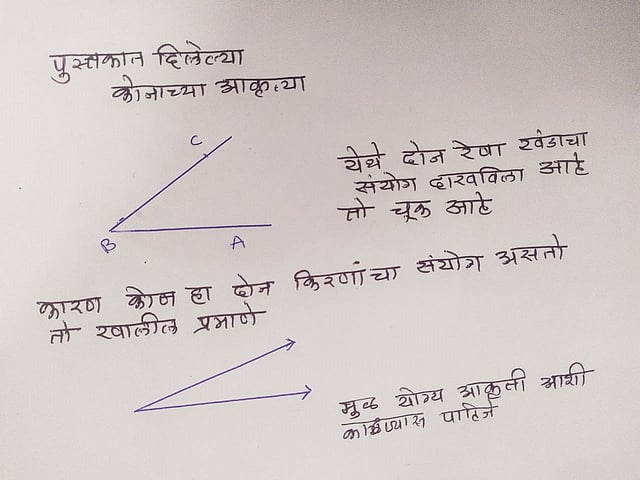 पुस्तकात दिलेल्या
कोनाच्या आकृत्या
C
B
A
येथे दोन रेषा खंडाचा
संयोग दाखविला आहे
तो चूक आहे
कारण कोन हा दोन किरणांचा संयोग असतो
तो खालील प्रमाणे
मुळ योग्य आकृती आशी
पाहिजे